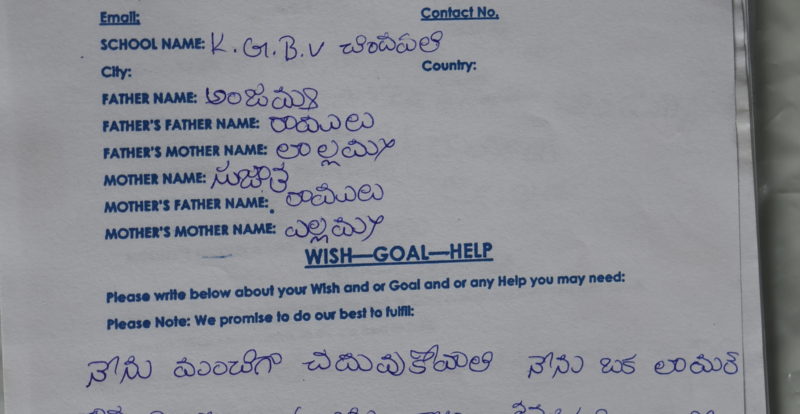 Email: Contact No.
SCHOOL NAME: K.G.B.V
City: Country:
FATHER NAME:
FATHER'S FATHER NAME: రాములు
FATHER'S MOTHER NAME:
MOTHER NAME: సుజాత
MOTHER'S FATHER NAME: రాములు
MOTHER'S MOTHER NAME: ఎల్లమ్మ
WISH—GOAL—HELP
Please write below about your Wish and or Goal and or any Help you may need:
Please Note: We promise to do our best to fulfil:
నేను మంచిగా చదువుకోవాలి నేను ఒక లాయర్